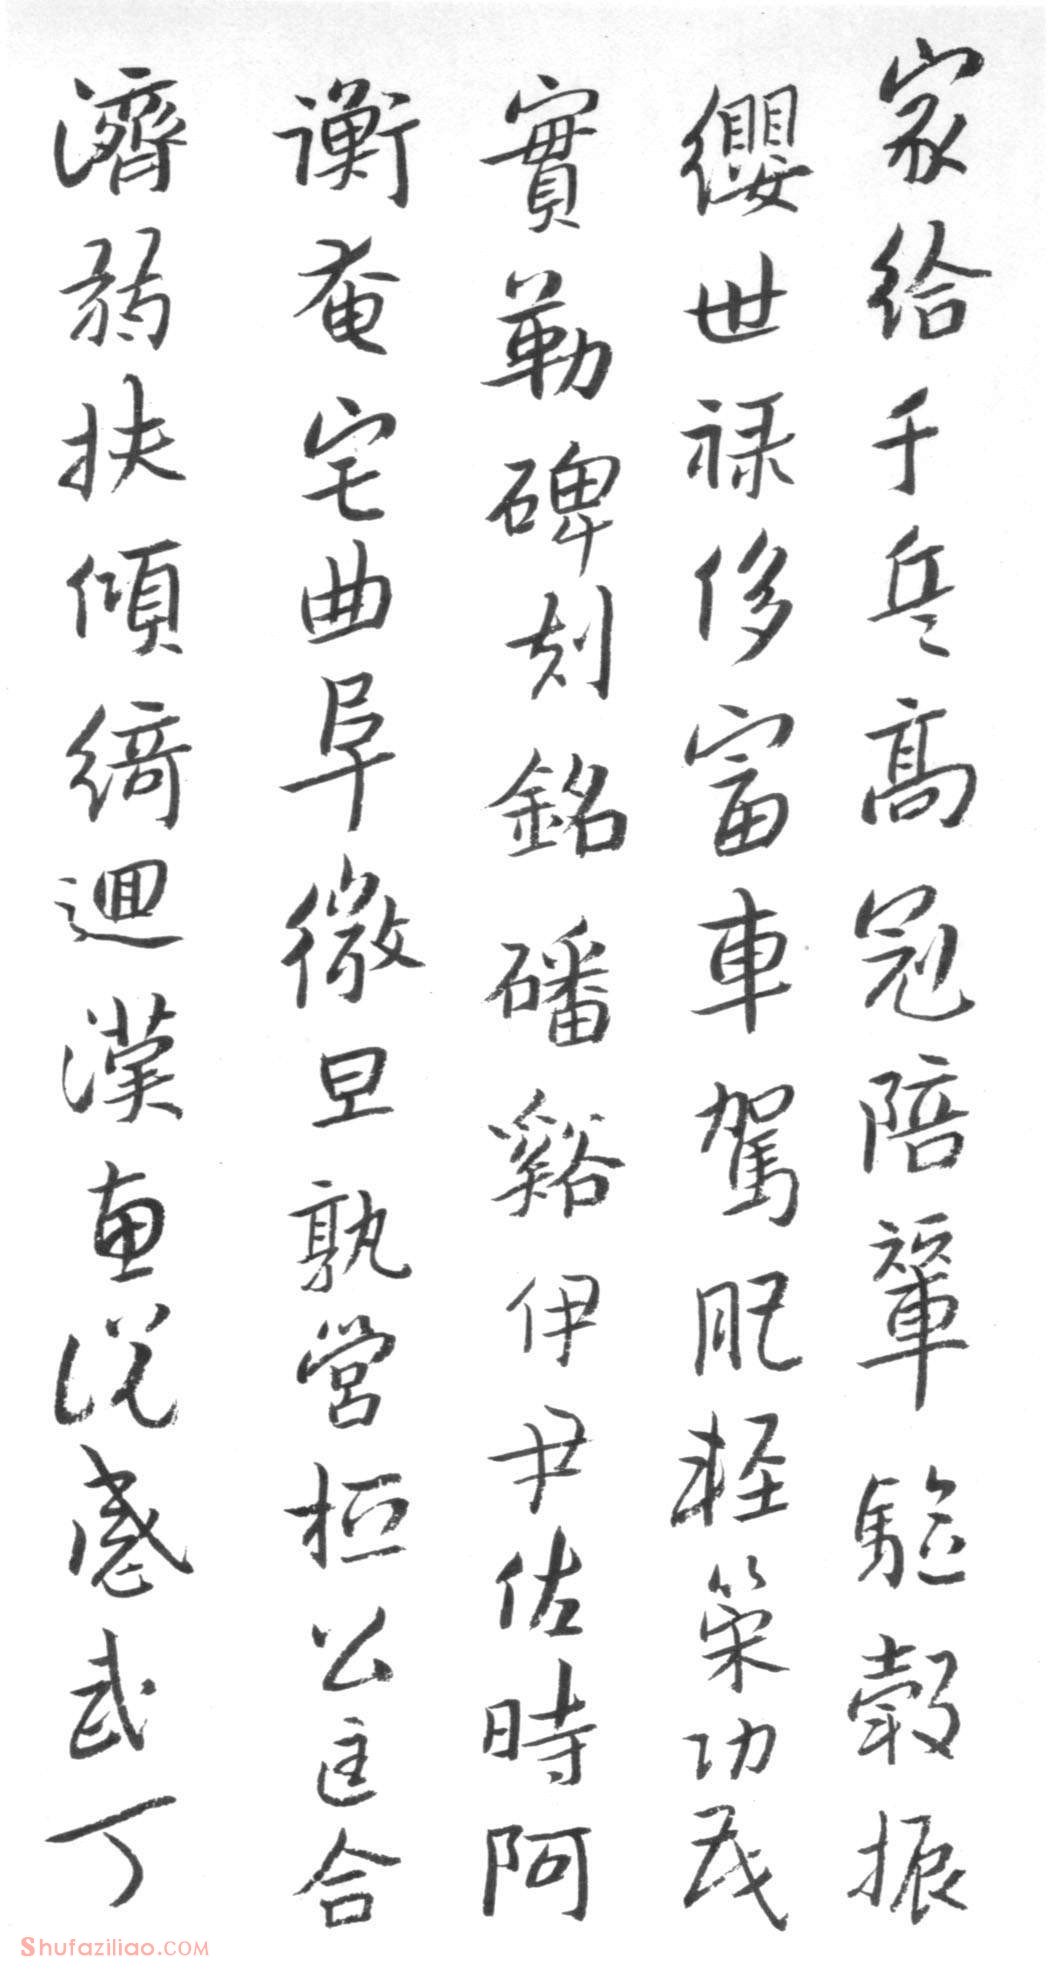 家給千兵高冠陪輦驅轂振
纓世祿侈富車駕肥輕策功茂
實勒碑刻銘磻谿伊尹佐時阿
衡奄宅曲阜微旦孰營桓公匡合
濟弱扶傾綺迴漢惠說感武丁
Shufaziliao.COM